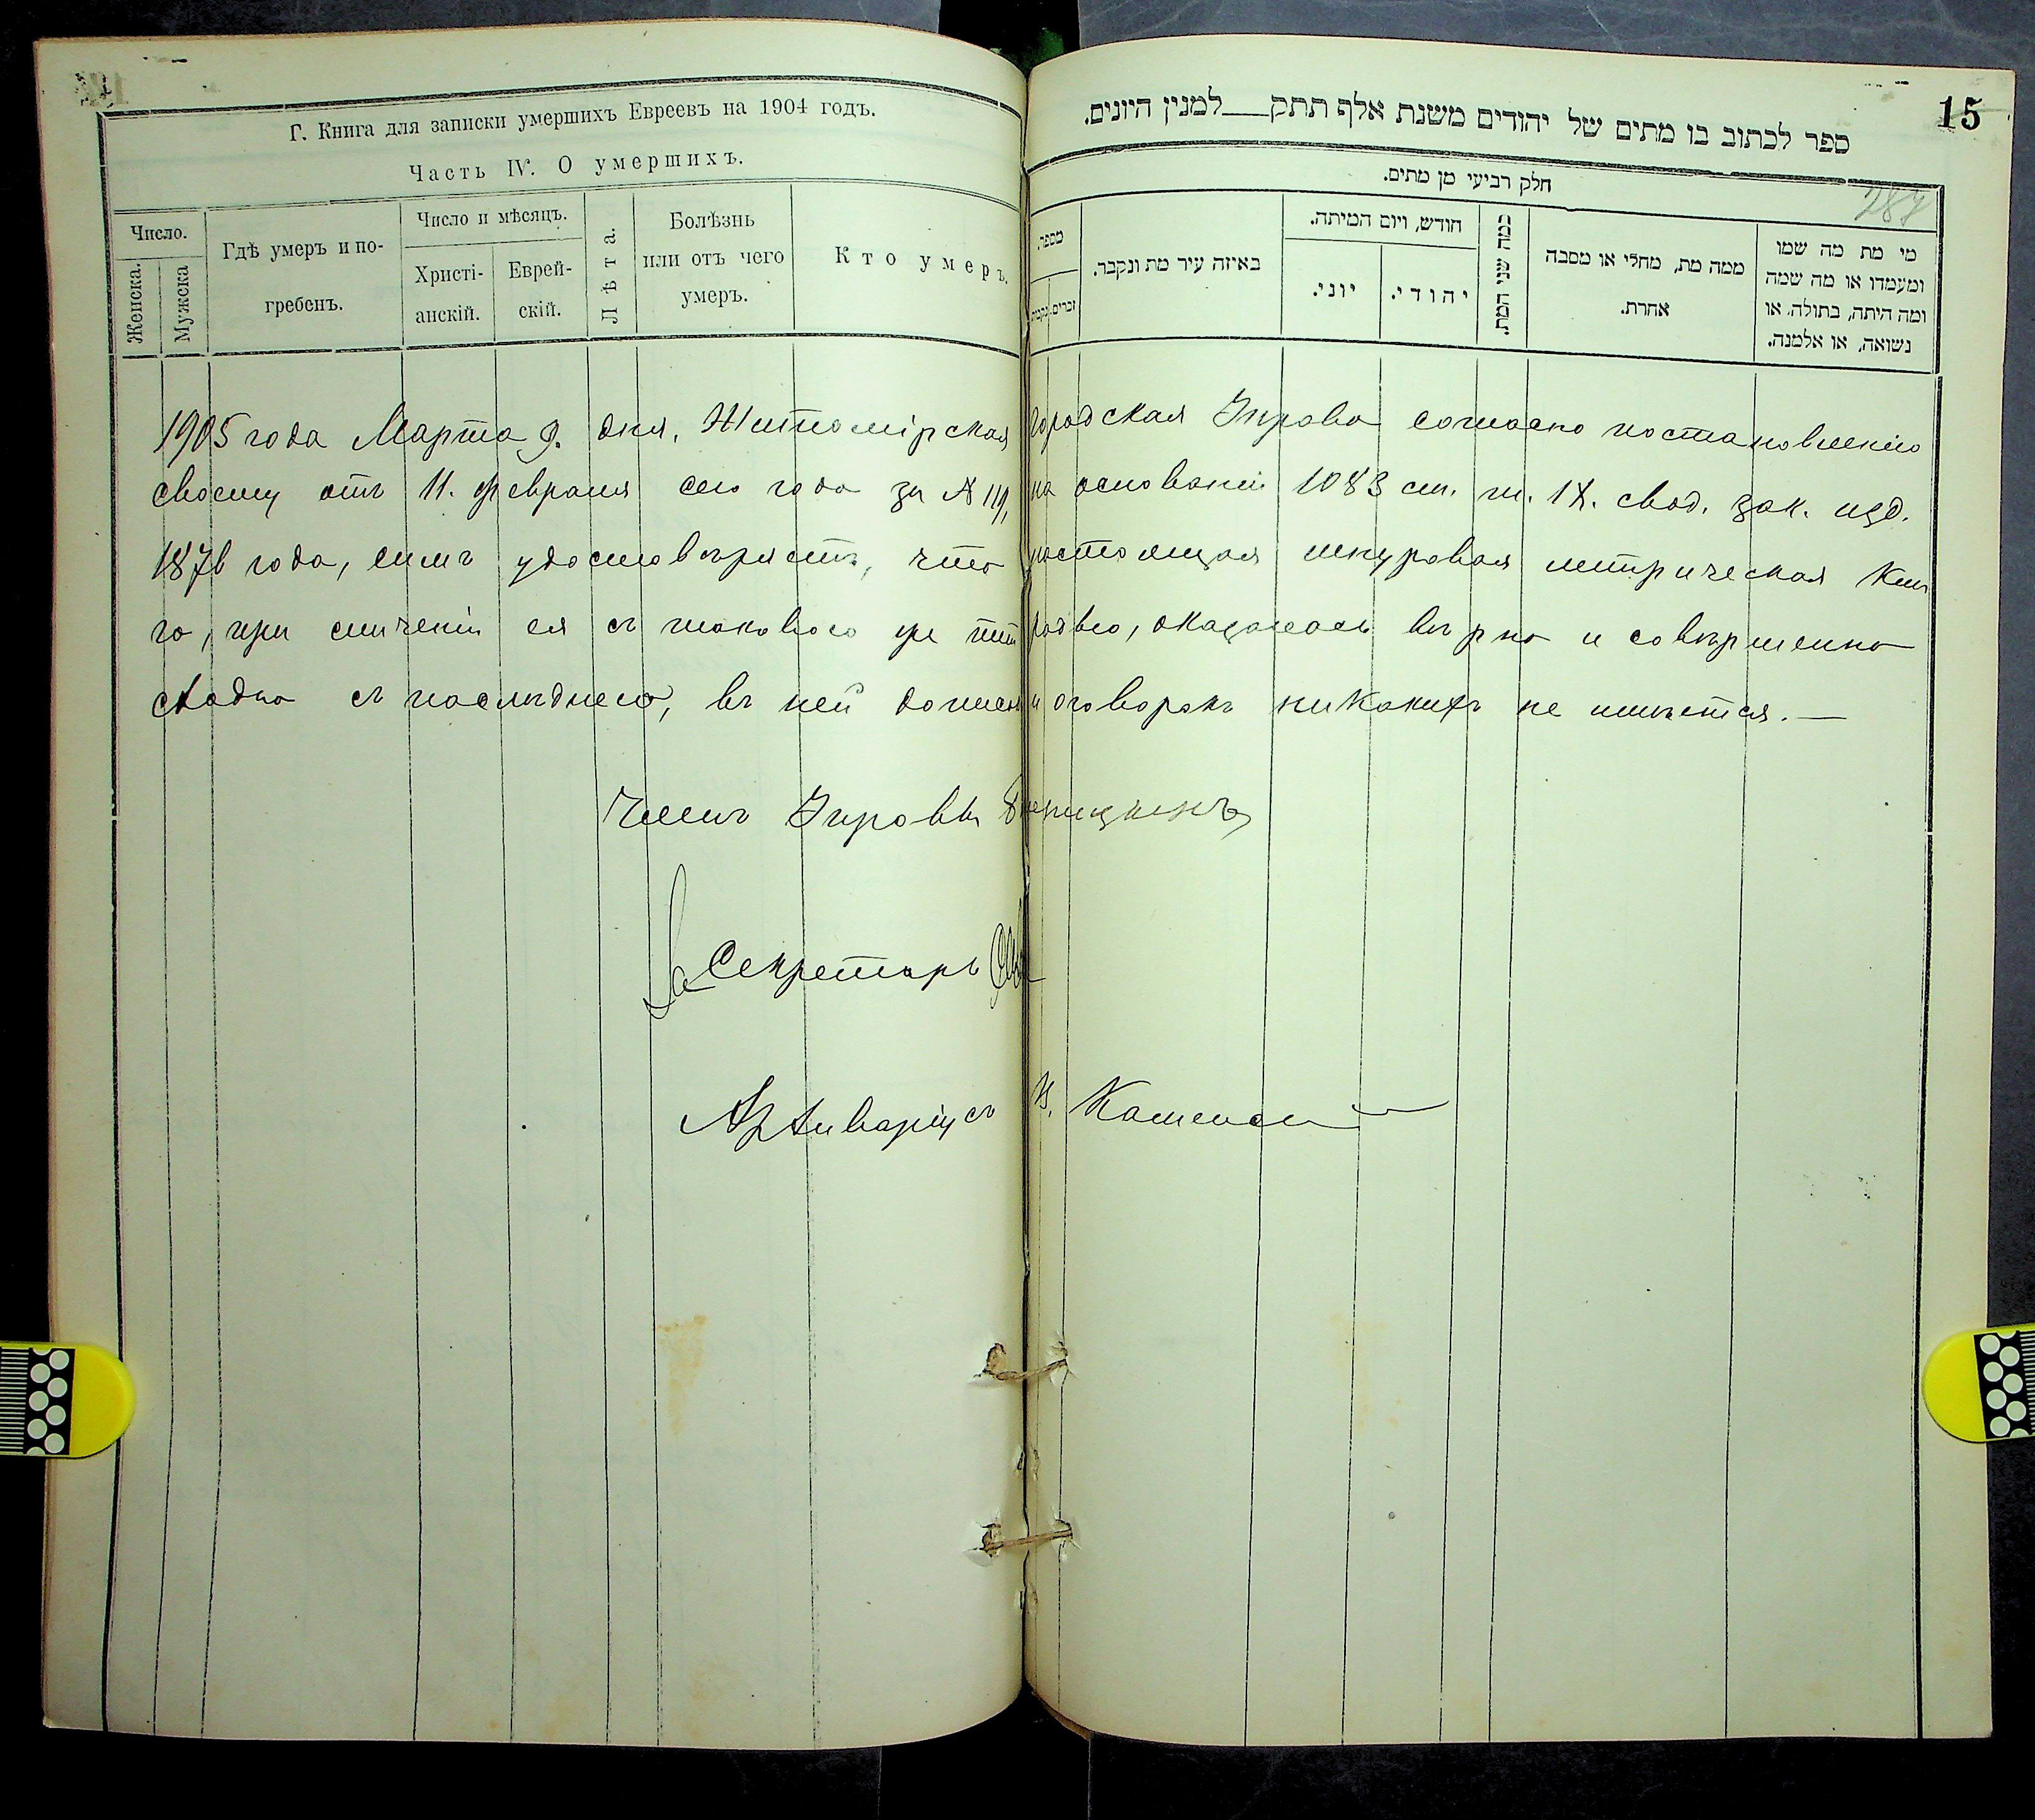 Г. Книга для записки умершихъ Евреевъ на 1904 годъ.
Часть IV. О умершихъ.
Число.
Женска.
Мужска
Гдѣ умеръ и по-
гребенъ.
Число и мѣсяцъ.
Христі-
анскій.
Еврей-
скій.
Лѣта.
Болѣзнь
или отъ чего
умеръ.
Кто умеръ.
15
ספר לכתוב בו מתים של יהודים משנת אלף תתק למנין היונים.
חלק רביעי מן מתים.
287
מספר.
זכרים.
נקבות
באיזה עיר מת ונקבר.
חודש, ויום המיתה.
יוני.
יהודי.
כמה שני המת.
ממה מת, מחלי או מסבה
אחרת.
מי מת מה שמו
ומעמדו או מה שמה
ומה היתה, בתולה, או
נשואה, או אלמנה.
1905 года Марта 9. дня, Житомірская городская Управа согласно постановленію
своему отъ 11. февраля сего года за № на основаніи 1083 ст. т. IX. свод. зак. изд.
1876 года, симъ удостовѣряетъ, что настоящая шнуровая метрическая Кни
га, при сличеніи ея съ таковою же оказалась вѣрна и совершенно
сходна съ послѣднею, въ ней оговорокъ никакихъ не имѣется. —
Членъ Управы
За Секретарь
Архиваріусъ